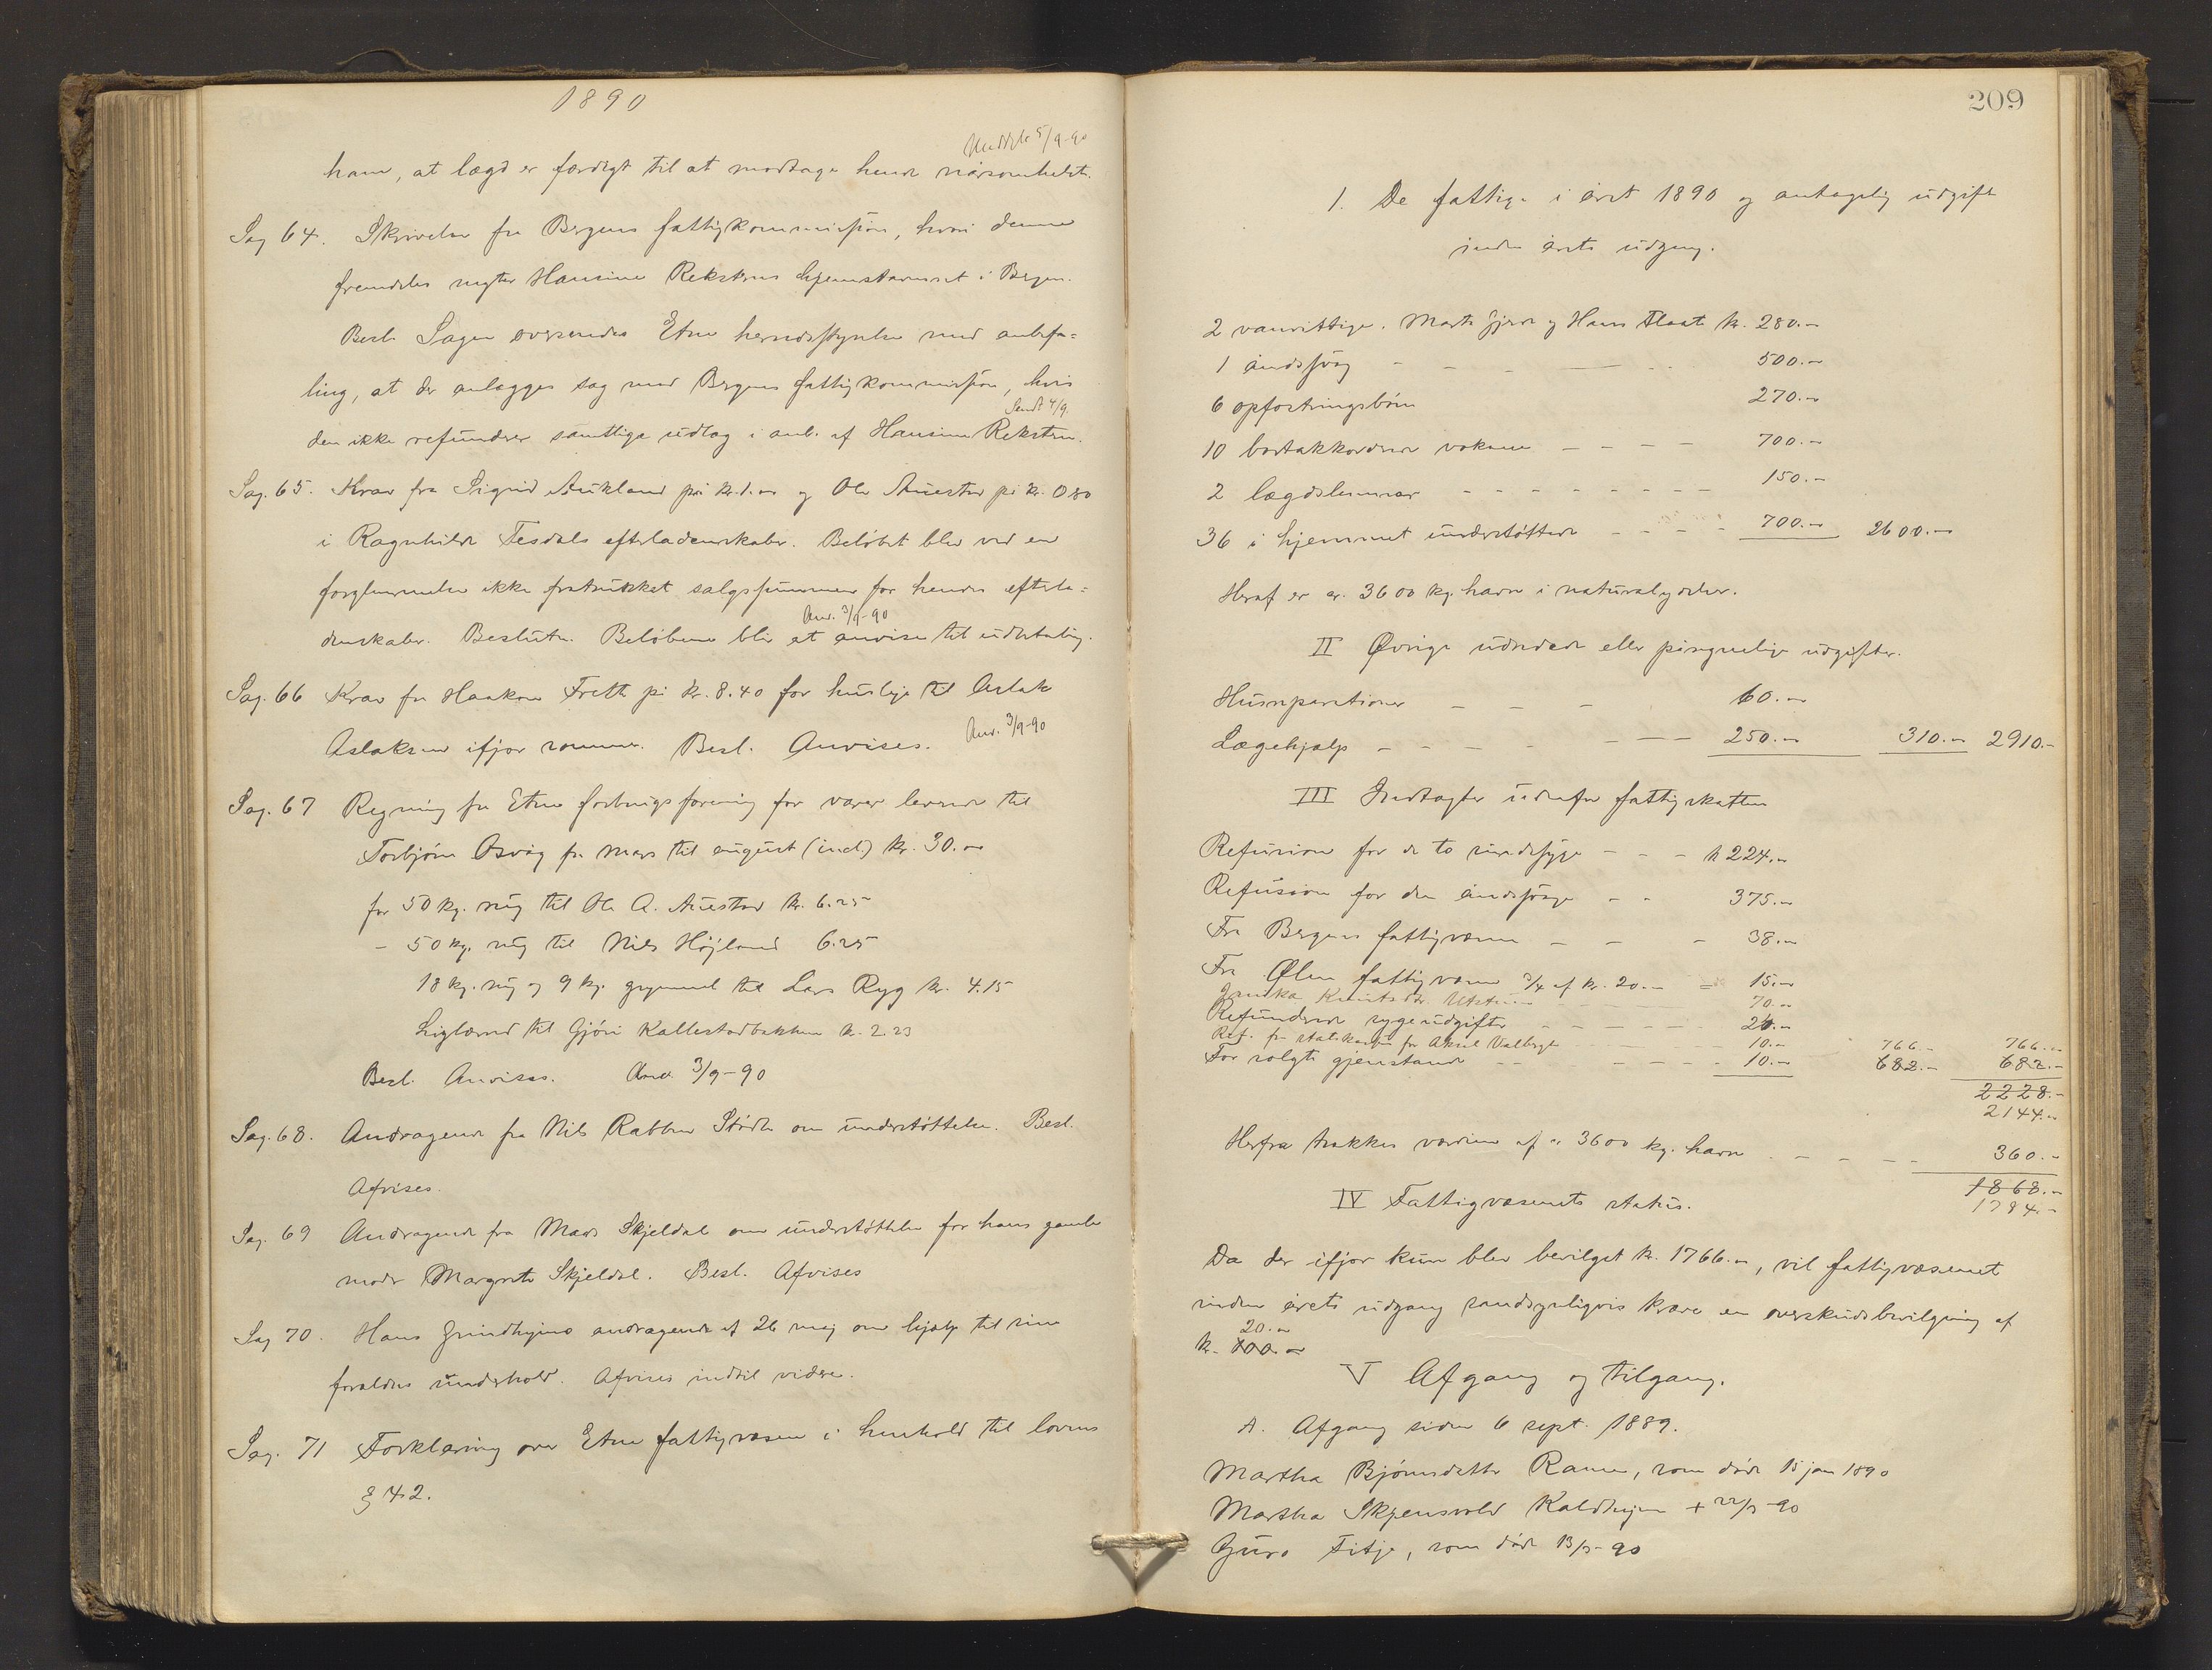 1890
Meddelt 5/9-90
ham, at lægd er færdigt til at modtage hende nårsomhelst.
Sag 64. Skrivelse fra Bergens fattigkommission, hvori denne
fremdeles negter Hansine Rekstens hjemstavnsret i Bergen.
Besl. Sagen oversendes Etne herredsstyrelse med anbefa-
ling, at der anlægges sag mod Bergens fattigkommission, hvis
Sendt 4/9.
den ikke refunderer samtlige udlæg i anl. af Hansine Reksten.
Sag. 65. Krav fra Sigrid Aukland på kr. 1.00 og Ole Auestad på kr. 0.80
i Ragnhilde Tesdals efterladenskaber. Beløbet blev ved en
forglemmelse ikke fratrukket salgssummen for hendes efterla-
Anv. 3/9-90
denskaber. Beslutn. Beløbene blir at anvise til udbetaling.
Sag. 66 Krav fra Haakon Frette på kr. 8.40 for husleje til Aslak
Aslaksen ifjor sommer. Besl. Anvises. Anv. 3/9-90
Sag. 67 Regning fra Etne forbrugsforening for varer leveret til
Torbjørn Osvåg fra mars til august (incl.) kr. 30.00
for 50 kg. rug til Ole A. Auestad kr. 6.25
- 50 kg. rug til Nils Højland 6.25
18 kg. rug og 9 kg. grynmel til Lars Ryg kr. 4.15
Liglærred til Gjøri Kallestadbakken kr. 2.23
Besl. Anvises. Anv. 3/9-90
Sag. 68. Andragende fra Nils Rabben Stødle om understøttelse. Besl.
Afvises.
Sag. 69 Andragende fra Mads Skjeldal om understøttelse for hans gamle
moder Margrete Skjeldal. Besl. Afvises
Sag 70. Hans Grindheims andragende af 26 maj om hjælp til sine
forældres underhold. Afvises indtil videre.
Sag. 71 Forklaring over Etne fattigvæsen i henhold til lovens
§ 42.
209
1. De fattige i året 1890 og antagelig udgift
inden årets udgang.
2 vanvittige. Marte Gjerde og Hans Flaate kr. 280.-
1 åndssvag - - - 500.-
6 opfostringsbørn 270.-
10 bortakkorderede voksne - - - - 700.-
2 lægdslemmer - - - - - - - - 150.-
36 i hjemmet understøttede - - - - 700.- 2600.-
Heraf er ca. 3600 kg. havre i naturalydelser.
II Øvrige udredede eller påregnelige udgifter.
Husreparationer - - - 60.-
Lægehjælp - - - - - - - 250.- 310.- 2910.-
III Indtægter udenfor fattigskatten
Refusion for de to sindssyge - - - kr 224.-
Refusion for den åndssvage - - 375.-
Fra Bergens fattigvæsen - - - 38.-
Fra Ølen fattigvæsen 3/4 af kr. 20.- = 15.-
Knuts 70.-
Refunderede sygeudgifter - - - - - - 20.-
Ref. fra statskassen for Aksel Valberg 10.- 766.- 766.-
For solgte gjenstande - - - - - - - 10.- 682.- 682.-
2228.-
2144.-
Herfra trækkes værdien af ca 3600 kg. havre - - - - 360.-
1868.-
1784.-
IV Fattigvæsenets status.
Da der ifjor kun blev bevilget kr. 1766.-, vil fattigvæsenet
inden årets udgang sandsynligvis kræve en overskudsbevilgning af
20.-
kr. 100.-
V Afgang og tilgang.
A. Afgang siden 6 sept. 1889.
Martha Bjørnsdatter Ramne, som døde 15 jan 1890
Martha Skjensvold Kaldheim + 22/3-90
Guro Fitje, som døde 13/3-90